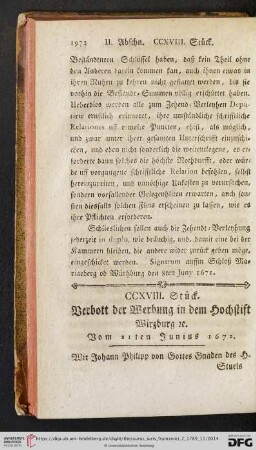 1972 II. Abschn. CCXVIII. Stück.
Beständtnern Schlüssel haben, daß kein Theil ohne
den Anderen darein kommen kan, auch ihnen etwas in
ihren Nutzen zu kehren nicht gestattet werden, bis sie
vorhin die Bestands-Summen völlig erschüttet haben.
Ueberdies werden alle zum Zehend-Verleyhen Depu-
tirte ernstlich erinnert, ihre umständliche schriftliche
Relationes uff emelte Puncten, ehist, als möglich,
und zwar unter der ganzen Unterschrift einzuschi-
cken, und eben nicht sonderlich die weitentlegene, es er-
forderte dann solches die höchste Nothdurfft, oder wür-
de uf vorgangene schriftliche Relation befohlen, selbst
hereinzureiten, und unnöthige Unkosten zu verursachen,
sondern vorfallender Gelegenheiten erwarten, auch son-
sten diesfalls solchen Fleis erscheinen zu lassen, wie es
ihre Pflichten erforderen.
Schliesslichen sollen auch die Zehend-Verleyhung
jederzeit in duplo, wie bräuchig, und, damit eine bei der
Kammern bleiben, die andere wider zurück geben möge,
eingeschicket werden. Signatum auffm Schloß Ma-
riaeberg ob Würtzburg den 8ten Juny 1672.
CCXVIII. Stück.
Verbott der Werbung in dem Hochstift
Wirzburg ꝛc.
Vom 11ten Junius 1672.
Wir Johann Philipp von Gottes Gnaden des H.
Stuels
UNIVERSITÄTS-
BIBLIOTHEK
HEIDELBERG
http://digi.ub.uni-heidelberg.de/diglit/thesaurus_iuris_franconici_2_1789_11/0014
© Universitätsbibliothek Heidelberg
DFG